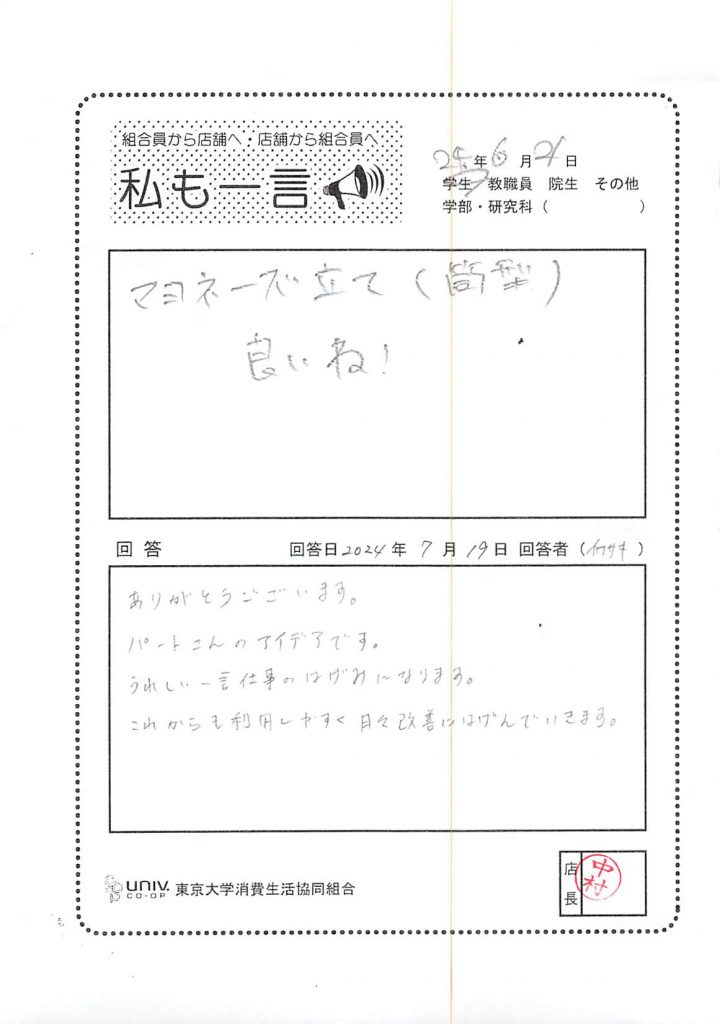 組合員から店舗へ・店舗から組合員へ
私も一言
24年6月21日
学生 教職員 院生 その他
学部・研究科( )
マヨネーズ立て(筒型)
良いね!
回答 回答日2024年7月19日 回答者(イワサキ)
ありがとうございます。
パートさんのアイデアです。
うれしい一言仕事のはげみになります。
これからも利用しやすく日々改善にはげんでいきます。
UNIV.
CO-OP
東京大学消費生活協同組合
店長
中村